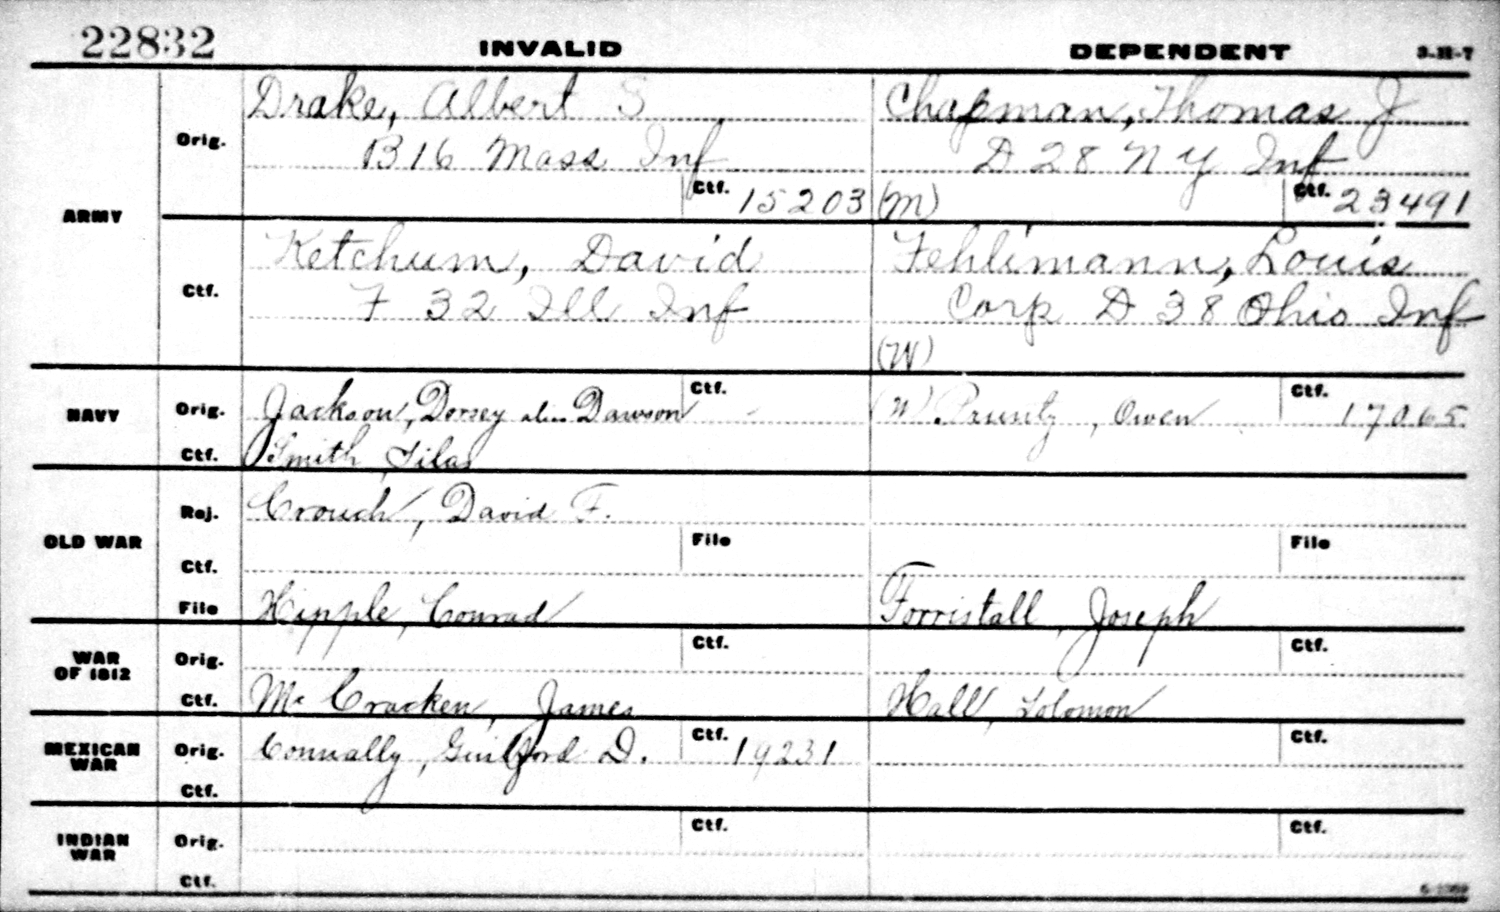 22832 INVALID DEPENDENT 3-11-7
Drake, Albert S Chapman, Thomas J
Orig. B 16 Mass Inf D 28 N Y Inf
Ctf. 15203 (M) Ctf. 23491
ARMY
Ketchum, David Fehlimann, Louis
Ctf. F 32 Ill Inf Corp D 38 Ohio Inf
(W)
NAVY Orig. Jackson, Dorsey alias Dawson Ctf. (W) Owen Ctf. 17065
Ctf. Smith, Silas
Rej. Crouch, David F.
OLD WAR Ctf. File File
File Hipple, Conrad Forristall, Joseph
WAR OF 1812 Orig. Ctf. Ctf.
Ctf. Mc Cracken, James Hall, Solomon
MEXICAN WAR Orig. Connally, Guilford D. Ctf. 19231 Ctf.
Ctf.
INDIAN WAR Orig. Ctf. Ctf.
Ctf.